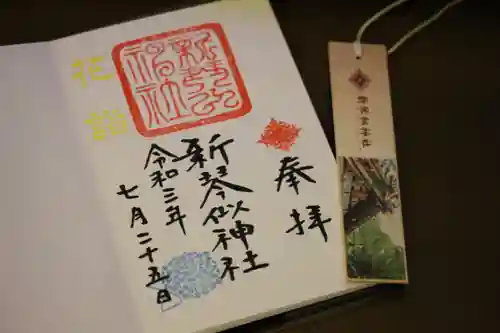 奉拝
新琴似神社
令和三年
七月二十五日
花詣
新琴似神社